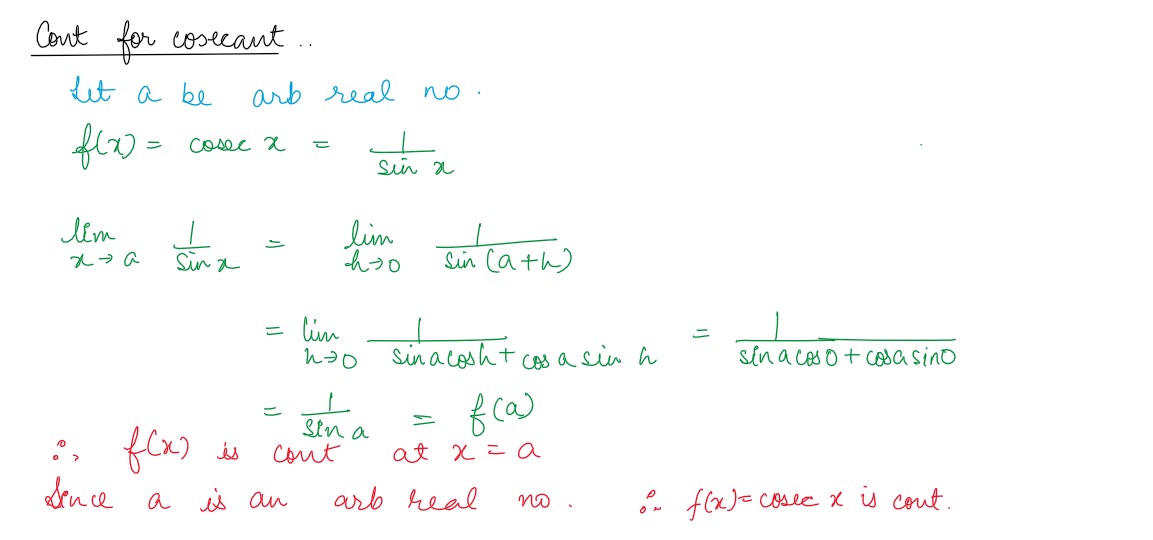 Cont for cosecant ..
Let a be arb real no .
f(x) = cosec x = 1/sin x
lim x→a 1/sin x = lim h→0 1/sin (a+h)
= lim h→0 1/sin a cos h + cos a sin h = 1/sin a cos 0 + cos a sin 0
= 1/sin a = f(a)
∴, f(x) is cont at x = a
Since a is an arb real no . ∴ f(x) = cosec x is cont.